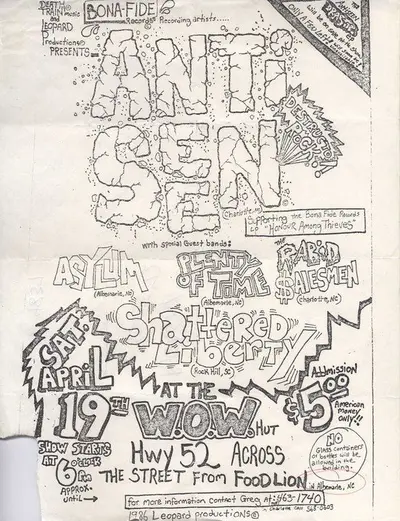 DEATH
TRAIN music
and
LEOPARD
Productions
PRESENTS
BONA-FIDE
Records Recording artists.....
ANTi
SEEN
DESTRUCTO
ROCK!!
Charlotte
Supporting the Bona Fide Records
LP "Honour Among Thieves"
with special guest bands:
ASYLUM
(Albemarle, NC)
PLENTY
OF TIME
(Albemarle, NC)
THE RABID
$ALESMEN
(Charlotte, NC)
Shattered
Liberty
(Rock Hill, SC)
SAT.
APRIL
19TH
SHOW STARTS
AT 6 O'CLOCK
PM
APPROX.
UNTIL →
AT THE
W.O.W. HUT
Hwy 52 ACROSS
THE STREET From FOOD LION
in Albemarle, NC
Admission
$5.00
American
money
only!!
NO
Glass containers
or bottles will be
allowed in the
building.
for more information contact Greg at: 463-1740
1986 Leopard productions®